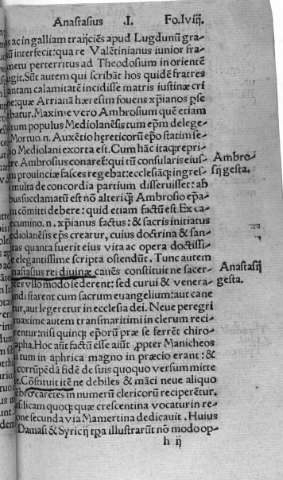 Anastasius .I. Fo.lviij.
ac in galliam traijciẽs apud Lugdunũ gra-
interfecit: qua re Valẽtinianus iunior fra-
metu perterritus ad Theodosium in oriẽtẽ
fugit. Sũt autem qui scribãt hos quidẽ fratres
tantam calamitatẽ incidisse matris iustinæ cri
quæ Arriana hæresim fouens xp̃ianos pse
batur. Maxime vero Ambrosium quẽ etiam
tum populus Mediolanẽsis tum ep̃m delege-
Mortuo .n. Auxẽtio hereticorũ ep̃o statim se
Mediolani exorta est. Cum hãc itaq; repri
re Ambrosius conaref: qui tũ consularis eius-
provinciæ fasces regebat: ecclesiãq; ingres
multa de concordia partium disseruisset: ab
bus sucłamatũ est nõ alteri q̃; Ambrosio ep̃a-
cõmitti debere: quid etiam factũ est. Ex ca-
cumino .n. xp̃ianus factus: & sacris initiatus
Mediolanẽsis ep̃s creatur, cuius doctrina & san-
tas quanta fuerit eius vita ac opera doctissi
elegantissime scripta ostendũt. Tunc autem
Anastasius rei diuinæ cauẽs constituit ne sacer
vllo modo sederent: sed curui & venera-
di starent cum sacrum euangelium: aut cane
tur, aut legeretur in ecclesia dei. Neue peregri
maxime autem transmaritimi in clerum reci-
rentur: nisi quinq; eporũ præ se ferrẽt chiro-
pha. Hoc aũt factũ esse aiũt, ꝓpter Manicheos
tum in aphrica magno in præcio erant: &
corrupẽda fidẽ de suis quoquo versum mitte
Cõstituit itẽ ne debiles & mãci neue aliquo
mẽbro carẽtes in numerũ clericorũ reciperẽtur.
silicam quoq; quæ crescentina vocatur in re-
one secunda via Mamertina dedicauit. Huius
Damasi & Syricij tp̃a illustrarũt nõ modo op-
h ij
Ambro-
sij gesta.
Anastasij
gesta.